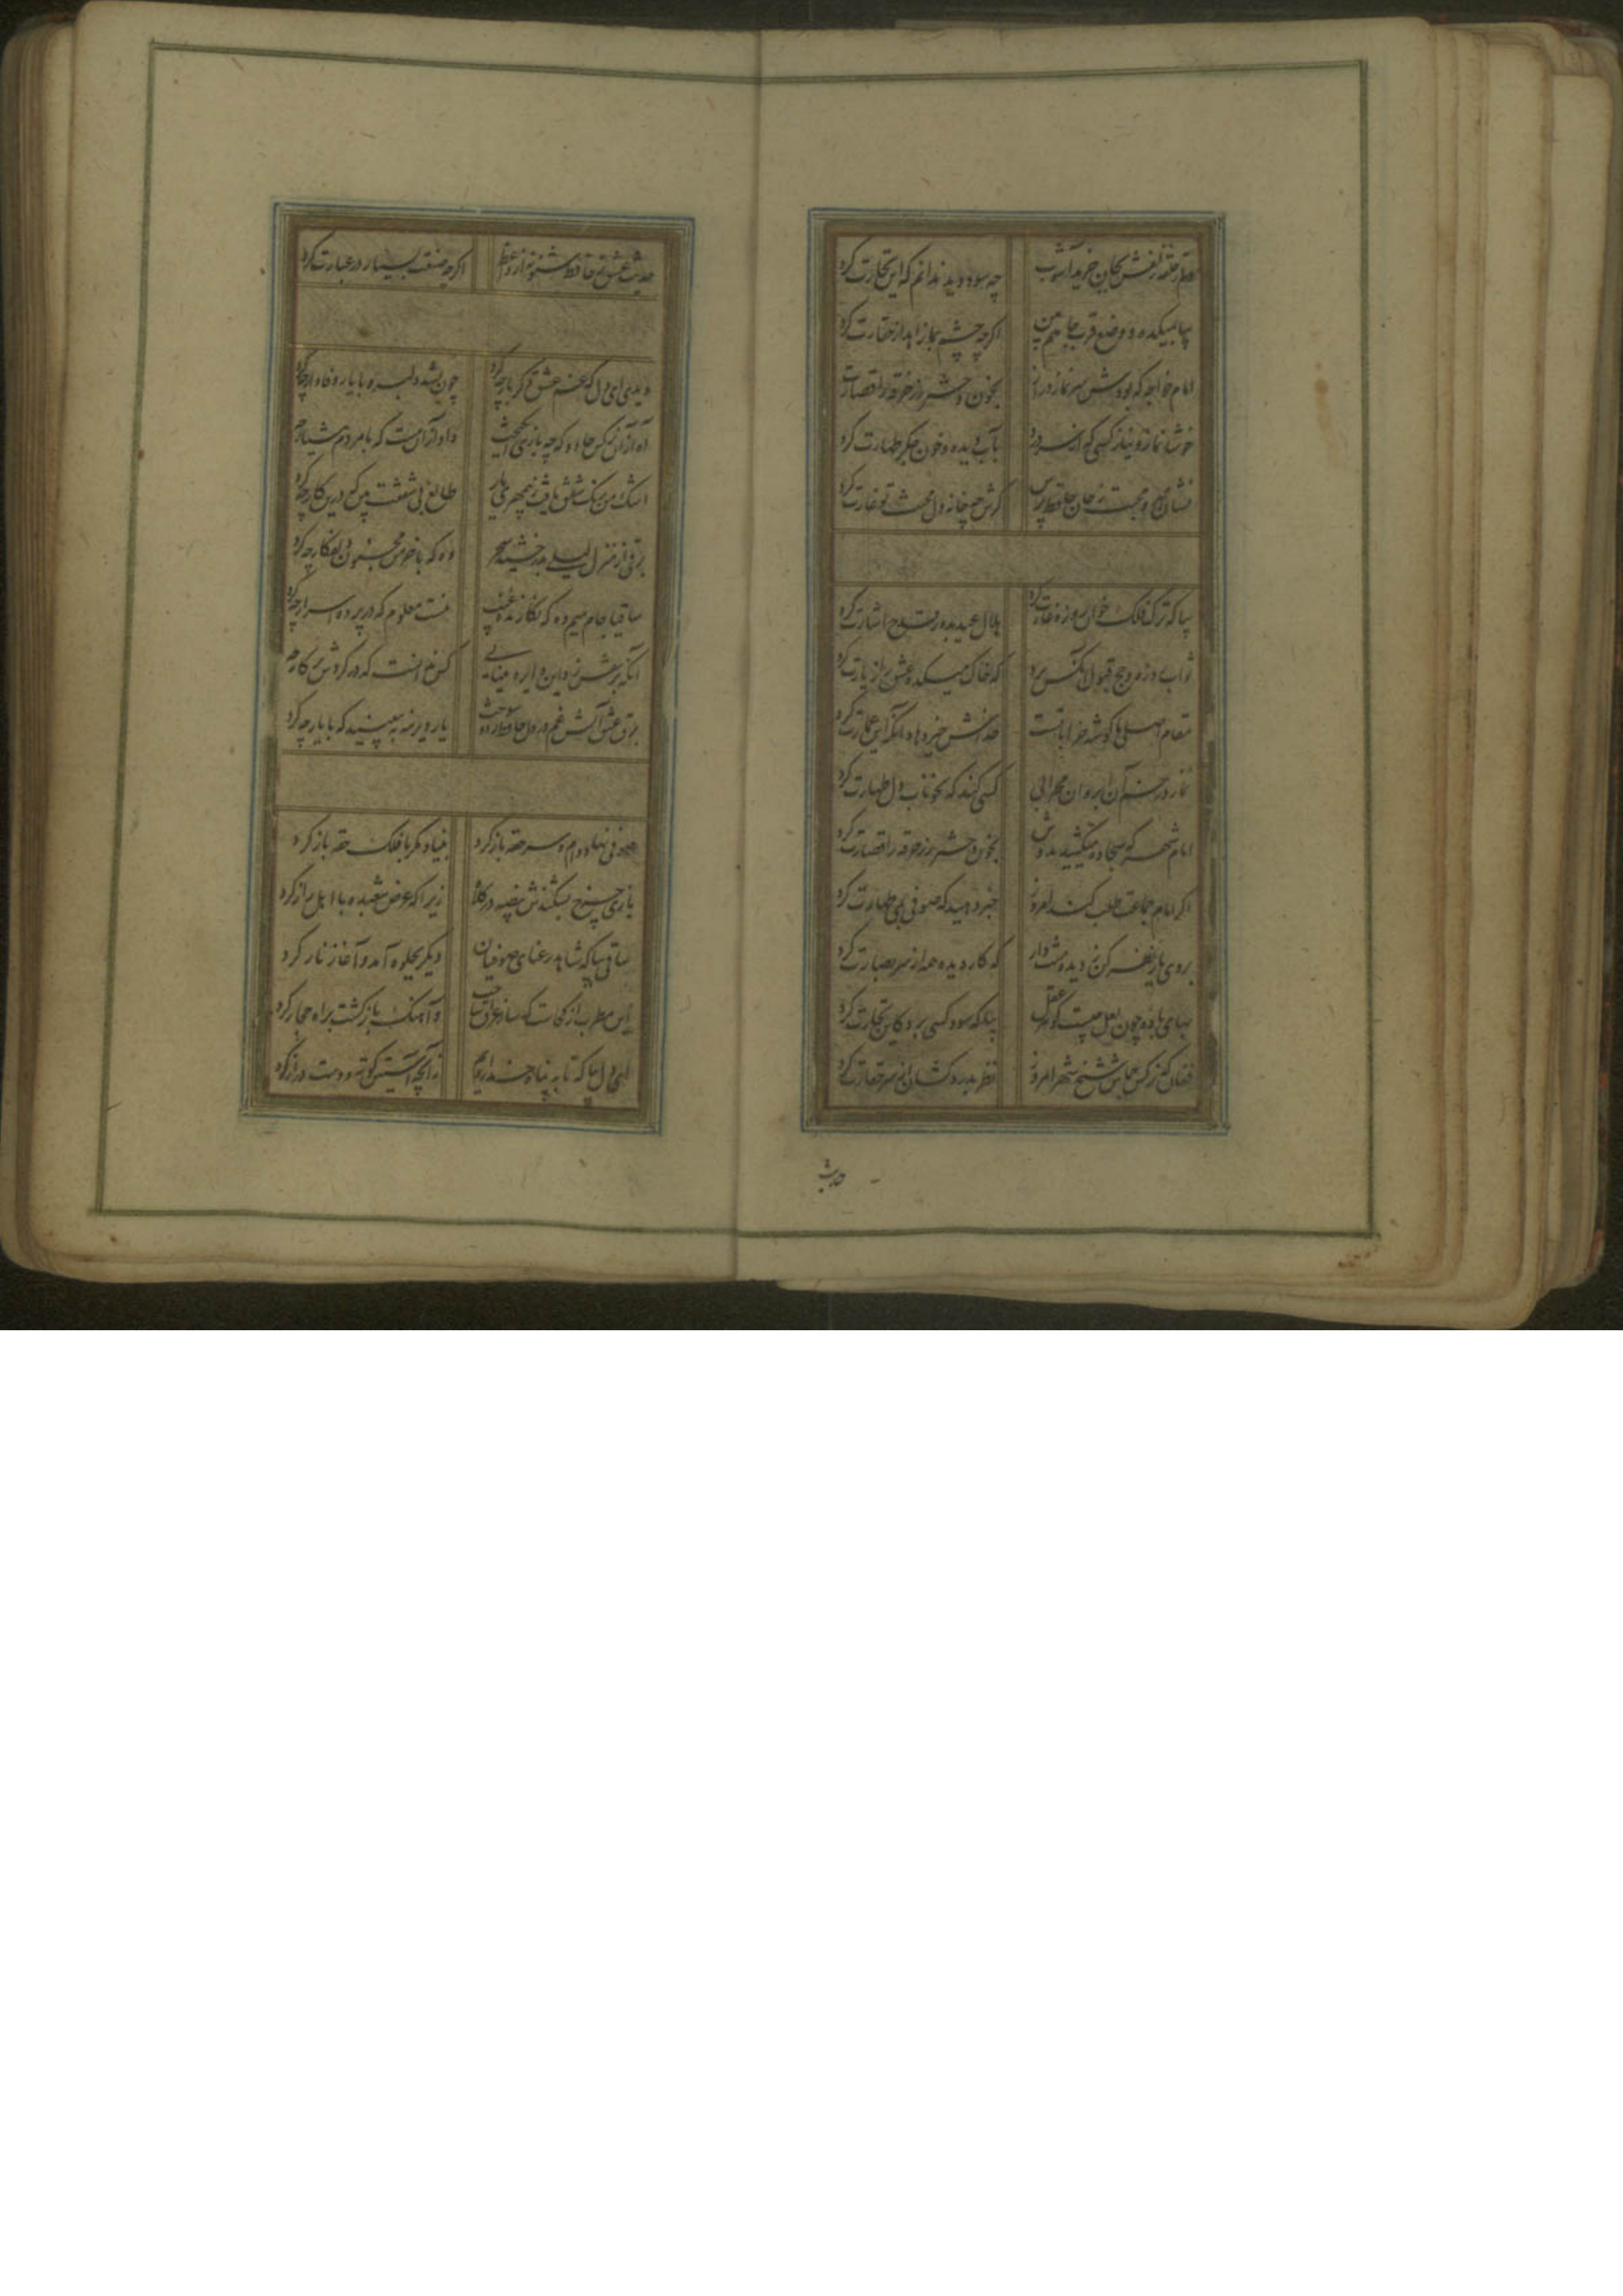 دلم ز حلقه زلفش بجان خرید آشوب چه سود دید ندانم که این تجارت کرد
بیا بمیکده و وضع قرب جاهم بین اگرچه چشم بما زاهد از حقارت کرد
امام خواجه که بودش سر نماز دراز بخون دختر رز خرقه را قصارت کرد
خوشا نماز و نیاز کسی که از سر درد بآب دیده و خون جکر طهارت کرد
نشان مهر و محبت ز جان حافظ پرس کرش چه خانه دل محنت تو غارت کرد
بیا که ترک فلک خوان روزه غارت کرد هلال عید بدور قدح اشارت کرد
ثواب روزه و حج قبول آنکس برد که خاک میکده عشق را زیارت کرد
مقام اصلی ما کوشه خراباتست خداش خیر دهاد آنکه این عمارت کرد
نماز در خم آن ابروان محرابی کسی کند که بخوناب دل طهارت کرد
امام شهر که سجاده میکشید بدوش بخون دختر رز خرقه را قصارت کرد
اکر امام جماعت طلب کند امروز خبر دهید که صوفی بمی طهارت کرد
بروی یار نظر کن ز دیده منت دار که کار دیده همه از سر بصارت کرد
بهای باده چون لعل چیست کوهر عقل بیا که سود کسی برد کاین تجارت کرد
فغان که نرکس جماش شیخ شهر امروز نظر بدردکشان از سر حقارت کرد
حدیث
حدیث عشق ز حافظ شنو نه از واعظ اکرچه صنعت بسیار در عبارت کرد
دیدی ای دل که غم عشق دکر بار چه کرد چون بشد دلبر و با یار وفادار چه کرد
آه از آن نرکس جادو که چه بازی انکیخت داد از آن مست که با مردم هشیار چه کرد
اشک من رنک شفق یافت ز بیمهری یار طالع بی شفقت بین که درین کار چه کرد
برقی از منزل لیلی بدرخشید سحر وه که با خرمن مجنون دل افکار چه کرد
ساقیا جام میم ده که نکارنده غیب نیست معلوم که در پرده اسرار چه کرد
آنکه پر نقش زد این دایره مینایی کس ندانست که در کردش پرکار چه کرد
برق عشق آتش غم در دل حافظ زد و سوخت یار دیرینه ببینید که با یار چه کرد
صوفی نهاد دام و سر حقه باز کرد بنیاد مکر با فلک حقه باز کرد
بازی چرخ بشکندش بیضه در کلاه زیرا که عرض شعبده با اهل راز کرد
ساقی بیا که شاهد رعنای صوفیان دیکر بجلوه آمد و آغاز ناز کرد
این مطرب از کجاست که ساز عراق ساخت و آهنک بازکشت براه حجاز کرد
ای دل بیا که تا به پناه خدا رویم ز آنچه آستین کوته و دست دراز کرد